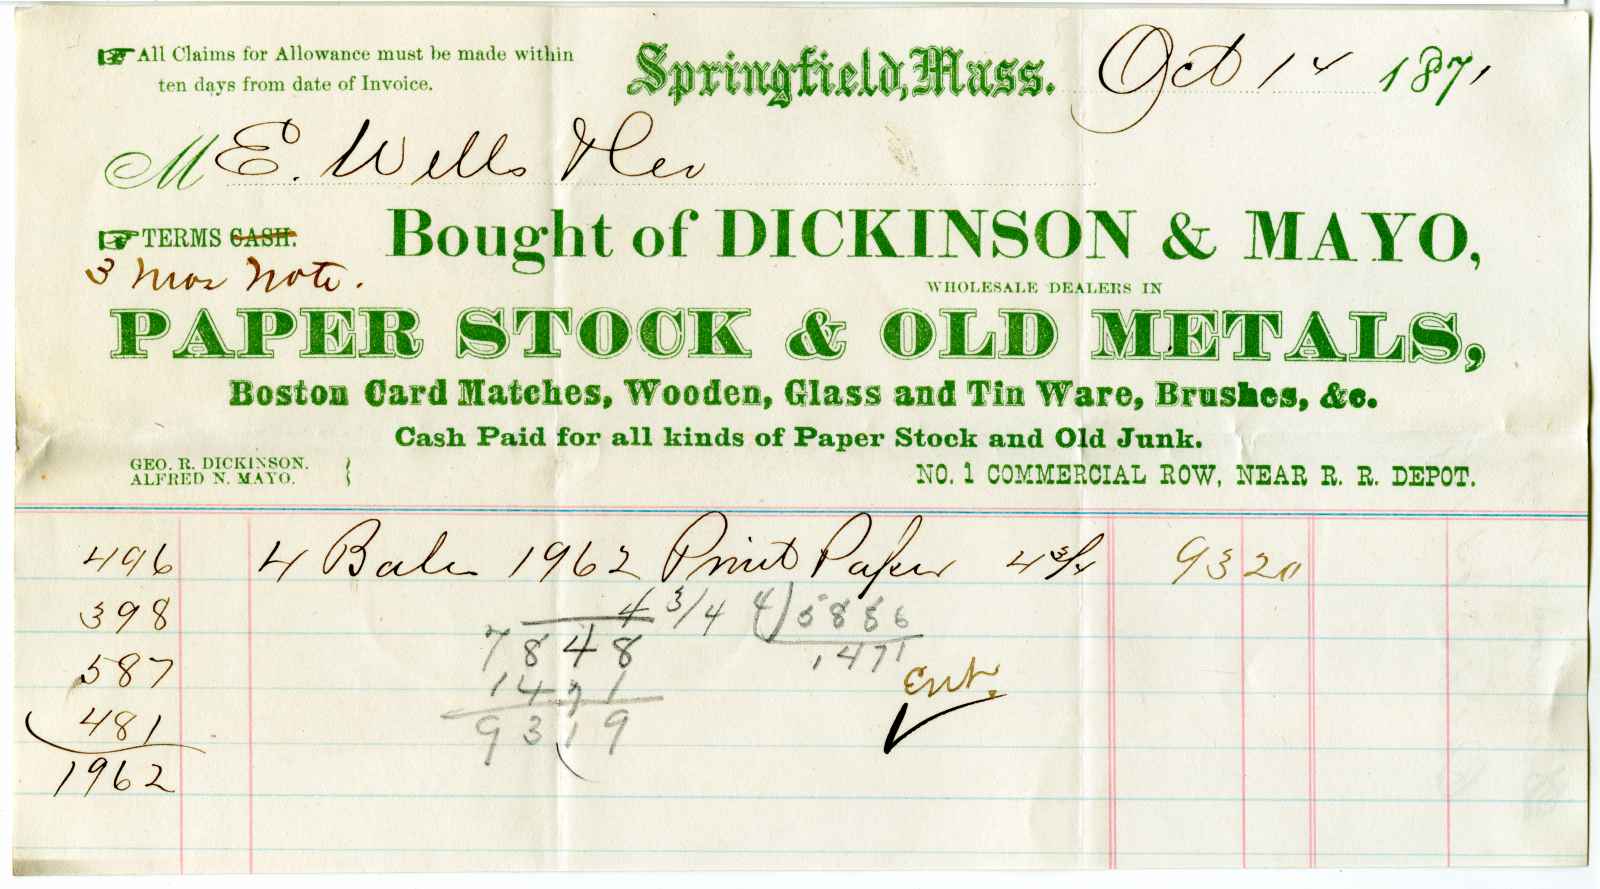 All Claims for Allowance must be made within
ten days from date of Invoice.
Springfield, Mass. Oct 14 1871
M E. Wells
TERMS CASH.
3 Mos Note.
Bought of DICKINSON & MAYO,
WHOLESALE DEALERS IN
PAPER STOCK & OLD METALS,
Boston Card Matches, Wooden, Glass and Tin Ware, Brushes, &c.
Cash Paid for all kinds of Paper Stock and Old Junk.
GEO. R. DICKINSON.
ALFRED N. MAYO.
NO. 1 COMMERCIAL ROW, NEAR R. R. DEPOT.
496 4 Bales 1962 Print Paper 4 3/4 93 20
398 4 3/4 4) 5886
7848 1471
587 Ent.
1471
481 9319
1962